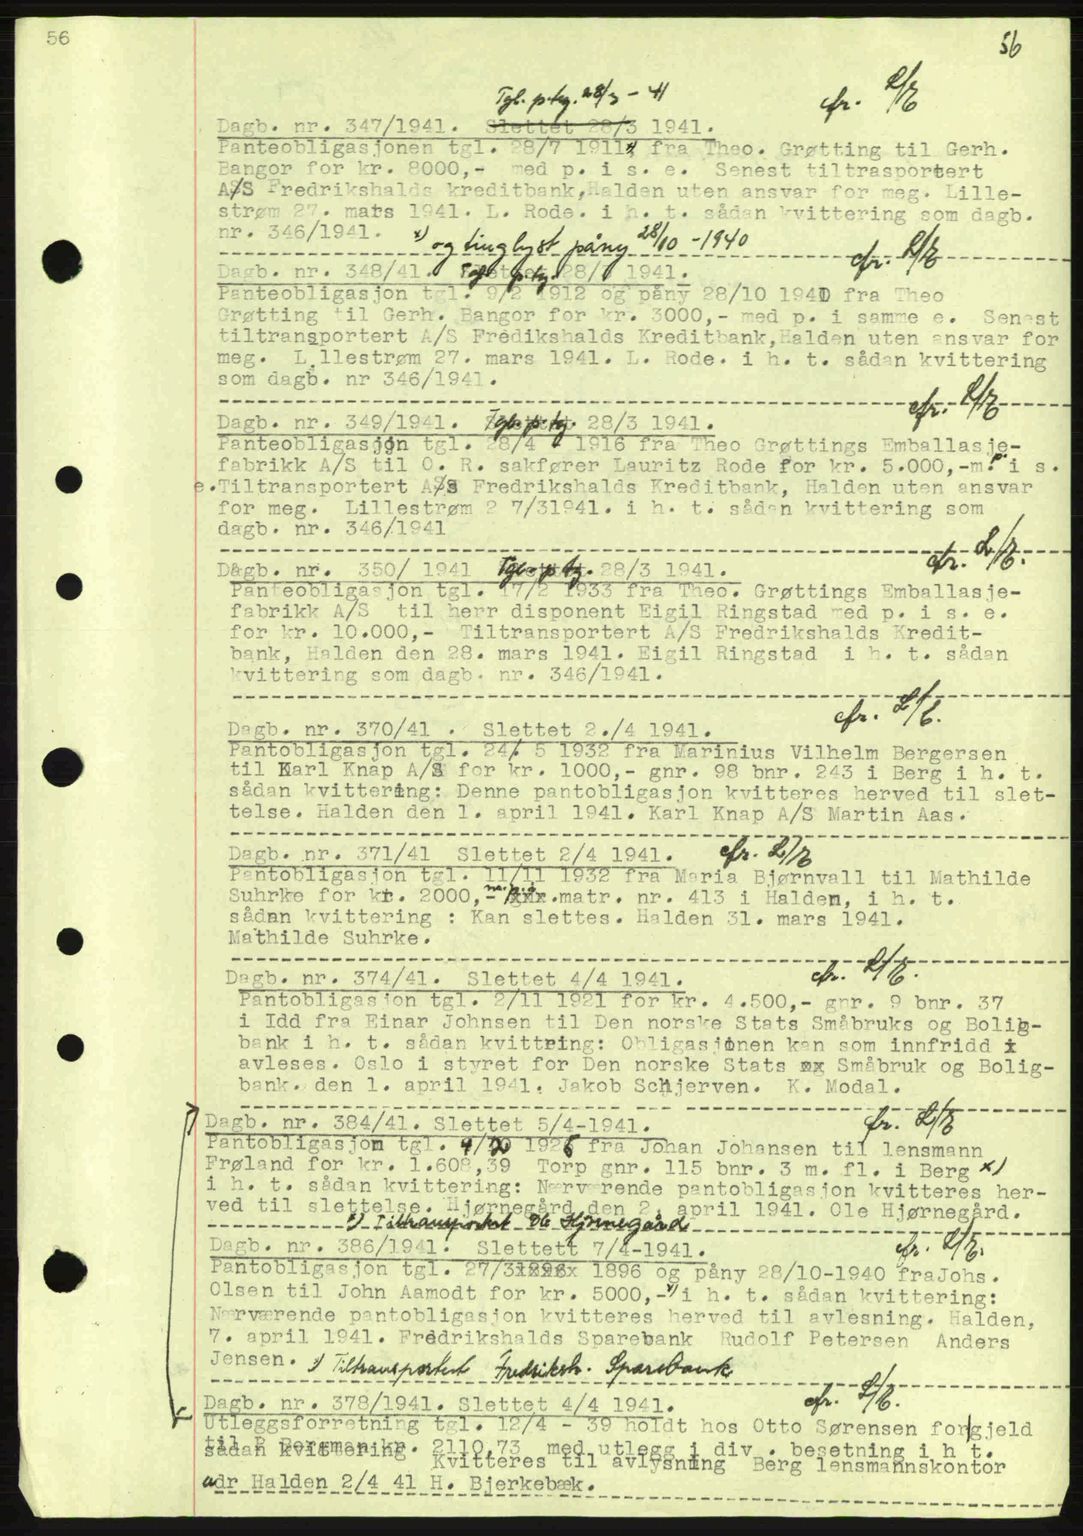 56
56
Tgl. ptg. 28/3 - 41
cfr. L/E
Dagb. nr. 347/1941. Slettet 28/3 1941.
Panteobligasjonen tgl. 28/7 1911 x) fra Theo. Grøtting til Gerh.
Bangor for kr. 8000,- med p. i s. e. Senest tiltrasportert
A/S Fredrikshalds kreditbank,Halden uten ansvar for meg. Lille-
strøm 27. mars 1941. L. Rode. i h. t. sådan kvittering som dagb.
nr. 346/1941. x) og tinglyst påny 28/10 -1940
cfr. L/E
Dagb. nr. 348/41. Tgl. ptg. 28/3 1941.
Panteobligasjon tgl. 9/2 1912 og påny 28/10 1940 fra Theo
Grøtting til Gerh. Bangor for kr. 3000,- med p. i samme e. Senest
tiltransportert A/S Fredikshalds Kreditbank,Halden uten ansvar for
meg. Lillestrøm 27. mars 1941. L. Rode. i h. t. sådan kvittering
som dagb. nr 346/1941.
cfr. L/E
Dagb. nr. 349/1941. Tgl. ptg. 28/3 1941.
Panteobligasjon tgl. 28/4 1916 fra Theo Grøttings Emballasje-
fabrikk A/S til O. R. sakfører Lauritz Rode for kr. 5.000,-m. p. i s.
e.Tiltransportert A/S Fredrikshalds Kreditbank, Halden uten ansvar
for meg. Lillestrøm 2 7/31941. i h. t. sådan kvittering som
dagb. nr. 346/1941
cfr. L/E.
Dagb. nr. 350/ 1941 Tgl. ptg. 28/3 1941.
Panteobligasjon tgl. 17/2 1933 fra Theo. Grøttings Emballasje-
fabrikk A/S til herr disponent Eigil Ringstad med p. i s. e.
for kr. 10.000,- Tiltransportert A/S Fredrikshalds Kredit-
bank, Halden den 28. mars 1941. Eigil Ringstad i h. t. sådan
kvittering som dagb. nr. 346/1941.
cfr. L/E.
Dagb. nr. 370/41 . Slettet 2./4 1941.
Pantobligasjon tgl. 24/. 5 1932 fra Marinius Vilhelm Bergersen
til Karl Knap A/S for kr. 1000,- gnr. 98 bnr. 243 i Berg i h. t.
sådan kvittering: Denne pantobligasjon kvitteres herved til slet-
telse. Halden den 1. april 1941. Karl Knap A/S Martin Aas.
Dagb. nr. 371/41 Slettet 2/4 1941. cfr. L/E
Pantobligasjon tgl. 11/11 1932 fra Maria Bjørnvall til Mathilde
Suhrke for kr. 2000,- matr. nr. 413 i Halden, i h. t.
sådan kvittering : Kan slettes. Halden 31. mars 1941.
Mathilde Suhrke.
Dagb. nr. 374/41. Slettet 4/4 1941. cfr. L/E.
Pantobligasjon tgl. 2/11 1921 for kr. 4.500,- gnr. 9 bnr. 37
i Idd fra Einar Johnsen til Den norske Stats Småbruks og Bolig-
bank i h. t. sådan kvittring: Obligasjonen kan som innfridd
avleses. Oslo i styret for Den norske Stats Småbruk og Bolig-
bank. den 1. april 1941. Jakob Schjerven. K. Modal.
Dagb. nr. 384/41. Slettet 5/4-1941. cfr. L/E
Pantobligasjon tgl. 4/20 1926 fra Johan Johansen til lensmann
Frøland for kr. 1.608,39 Torp gnr. 115 bnr. 3 m. fl. i Berg x)
i h. t. sådan kvittering: Nærværende pantobligasjon kvitteres her-
ved til slettelse. Hjørnegård den 2. april 1941. Ole Hjørnegård.
x) Tiltransportert Ole Hjørnegård
Dagb. nr. 386/1941. Slettett 7/4-1941. cfr. L/E.
Pantobligasjon tgl. 27/3 1896 og påny 28/10-1940 fraJohs.
Olsen til John Aamodt for kr. 5000,- x) i h. t. sådan kvittering:
Nærværende pantobligasjon kvitteres herved til avlesning. Halden,
7. april 1941. Fredrikshalds Sparebank Rudolf Petersen Anders
Jensen. x) Tiltransportert Fredriksh. Sparebank
Dagb. nr. 378/1941. Slettet 4/4 1941. cfr. L/E.
Utleggsforretning tgl. 12/4 - 39 holdt hos Otto Sørensen for gjeld
til P Bergman kr. 2110,73 med utlegg i div . besetning i h t.
sådan kvittering Kvitteres til avlysning Berg lensmannskontor
adr Halden 2/4 41 H. Bjerkebæk.